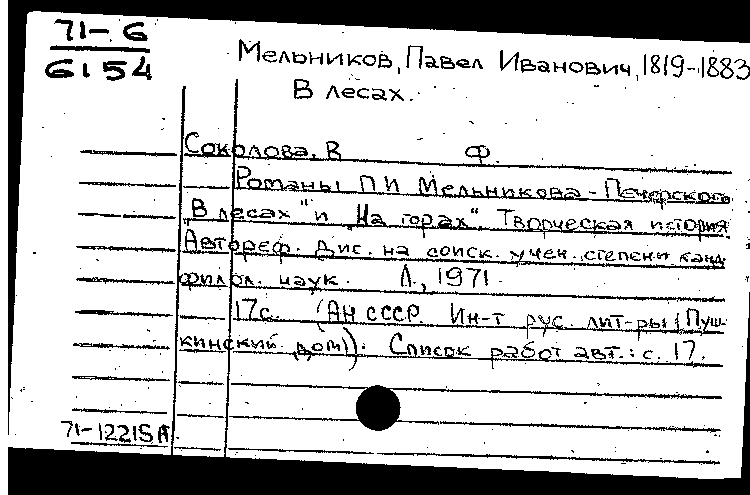 71-6
6154
Мельников, Павел Иванович, 1819-1883
В лесах.
Соколова, В Ф.
Романы П И Мельникова-Печерского
"В лесах" и "На горах". Творческая история
Автореф. дис. на соиск. учен. степени канд
филол. наук. Л., 1971.
17с. (АН СССР. Ин-т рус. лит-ры (Пуш-
кинский дом)). Список работ авт.: с. 17.
71-12215А